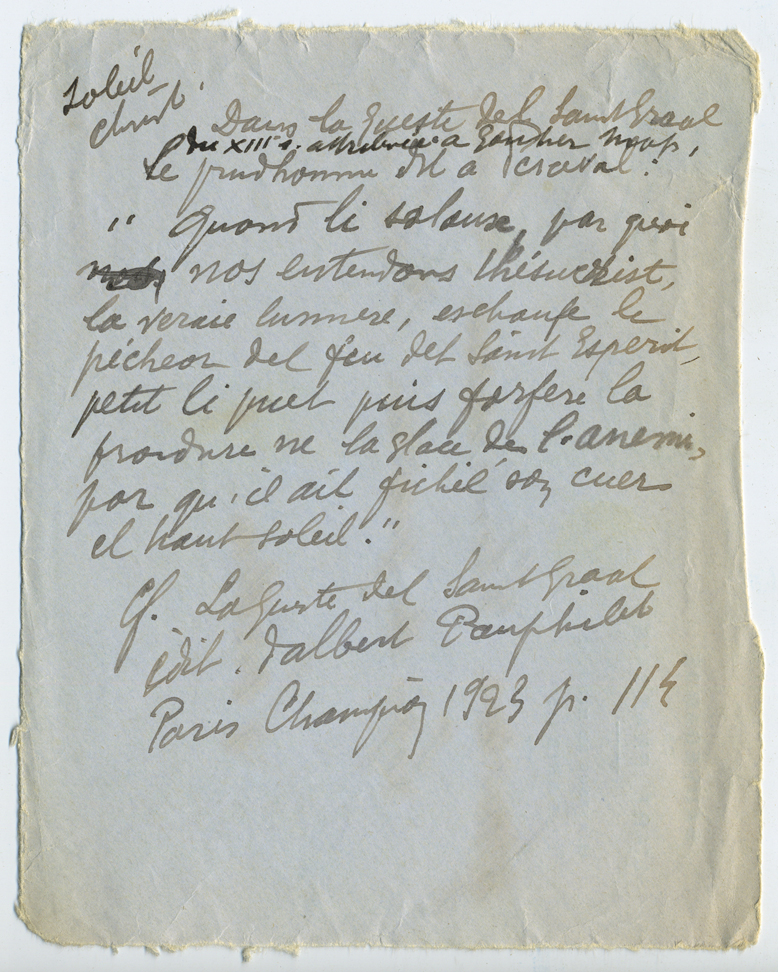 soleil
christ.
Dans la Queste del Saint Graal
du XIIIe s. attribuée à Gautier Map,
le prudhomme dit à Perceval :
" Quand li solaux, par quoi
nos entendons Ihésucrist,
la veraie lumiere, eschaufe le
pécheor del feu del Saint Esperit,
petit li puet puis forfere la
froidure ne la glace de l'anemi,
por qu'il ait fichié son cuer
el haut soleil."
Cf. La Queste del Saint Graal
édit. d'Albert Pauphilet
Paris Champion 1923 p. 114